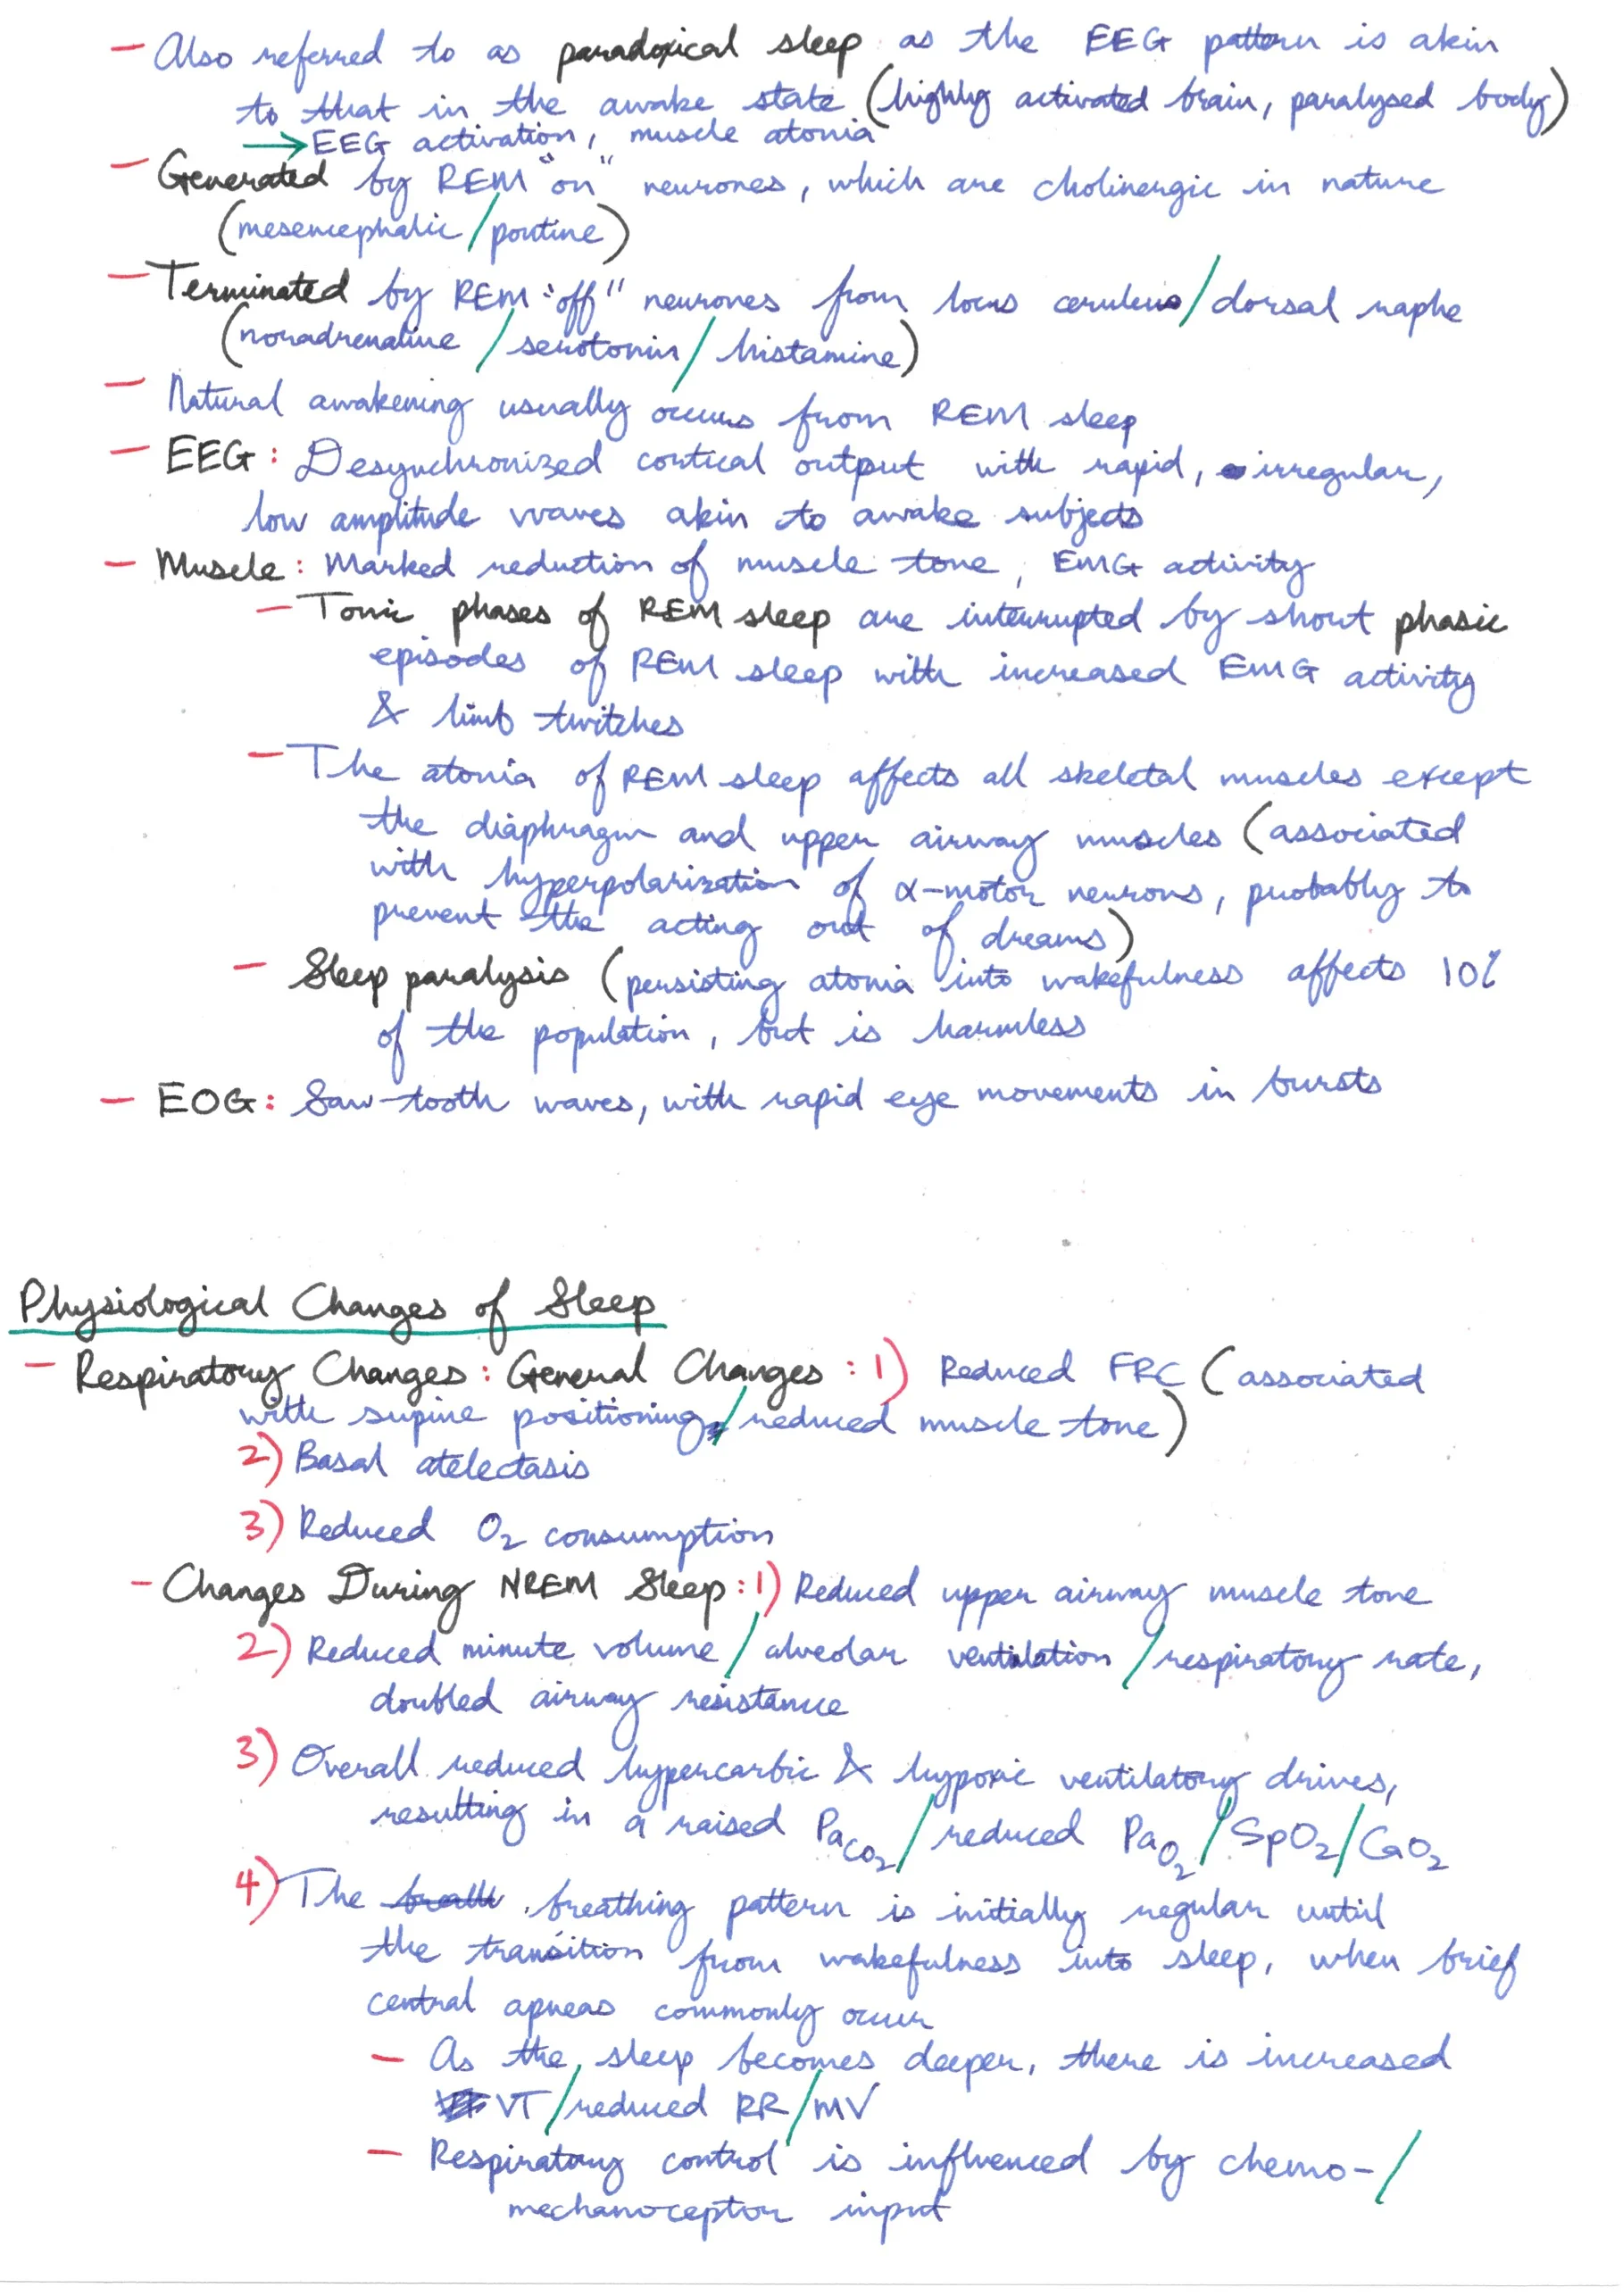 - Also referred to as paradoxical sleep as the EEG pattern is akin
to that in the awake state (highly activated brain, paralysed body)
→ EEG activation, muscle atonia
- Generated by REM "on" neurones, which are cholinergic in nature
(mesencephalic/pontine)
- Terminated by REM "off" neurones from locus ceruleus/dorsal raphe
(noradrenaline/serotonin/histamine)
- Natural awakening usually occurs from REM sleep
- EEG: Desynchronized cortical output with rapid, irregular,
low amplitude waves akin to awake subjects
- Muscle: Marked reduction of muscle tone, EMG activity
- Tonic phases of REM sleep are interrupted by short phasic
episodes of REM sleep with increased EMG activity
& limb twitches
- The atonia of REM sleep affects all skeletal muscles except
the diaphragm and upper airway muscles (associated
with hyperpolarization of α-motor neurons, probably to
prevent the acting out of dreams)
- Sleep paralysis (persisting atonia into wakefulness affects 10%
of the population, but is harmless
- EOG: Saw-tooth waves, with rapid eye movements in bursts
Physiological Changes of Sleep
- Respiratory Changes: General Changes: 1) Reduced FRC (associated
with supine positioning/reduced muscle tone)
2) Basal atelectasis
3) Reduced O2 consumption
- Changes During NREM Sleep: 1) Reduced upper airway muscle tone
2) Reduced minute volume/alveolar ventilation/respiratory rate,
doubled airway resistance
3) Overall reduced hypercarbic & hypoxic ventilatory drives,
resulting in a raised PaCO2/reduced PaO2/SpO2/CaO2
4) The breathing pattern is initially regular until
the transition from wakefulness into sleep, when brief
central apneas commonly occur
- As the sleep becomes deeper, there is increased
VT/reduced RR/MV
- Respiratory control is influenced by chemo-/
mechanoceptor input